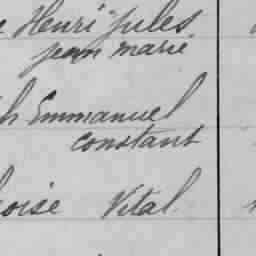 Henri Jules
jean marie
h Emmanuel
constant
oise Vital